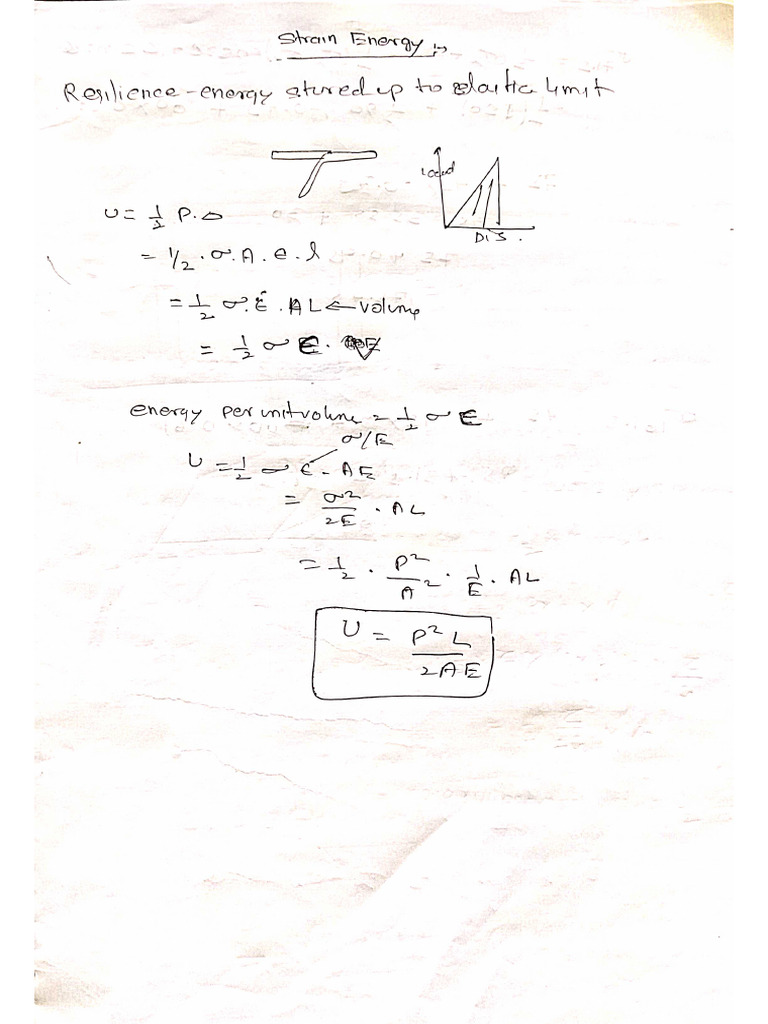 Strain Energy :-
Resilience - energy stured up to elastic limit
load
DIS.
U = 1/2 P.Δ
= 1/2 . σ . A . e . l
= 1/2 σ . E . AL ← volume
= 1/2 σ E . V
energy per unit volume = 1/2 σ E
σ/E
U = 1/2 σ E - AE
= σ²/2E . AL
= 1/2 . P²/A² . 1/E . AL
U = P² L / 2AE